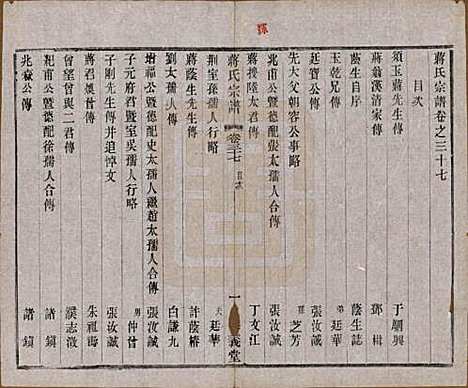 蔣氏宗譜卷之三十七
目次
須玉蔣先生傳 于駟興
蔣翁漢清家傳 鄧楫
蔭生自序 蔭生誌
玉乾兄傳 弟廷華
廷寶公傳 張汝誠
先大父朝容公事略 孫芝芳
兆甫公暨德配張太孺人合傳 張汝誠
蔣援陸太君傳 丁文江
蔣氏宗譜 卷三十七 目次 一 義堂
荆室孫孺人行略 夫廷華
蔣蔭生先生傳 許蔭椿
劉太孺人傳 白謙九
增福公暨德配史太孺人繼趙太孺人合傳 張汝誠
子元府君暨室吳孺人行略 男仲曾
子剛先生傳并追悼文 張汝誠
蔣君煥曾傳 朱福海
曾望曾與二君傳 濮志澂
耙甫公暨德配徐孺人合傳 諸鎮
兆森公傳 諸鎮